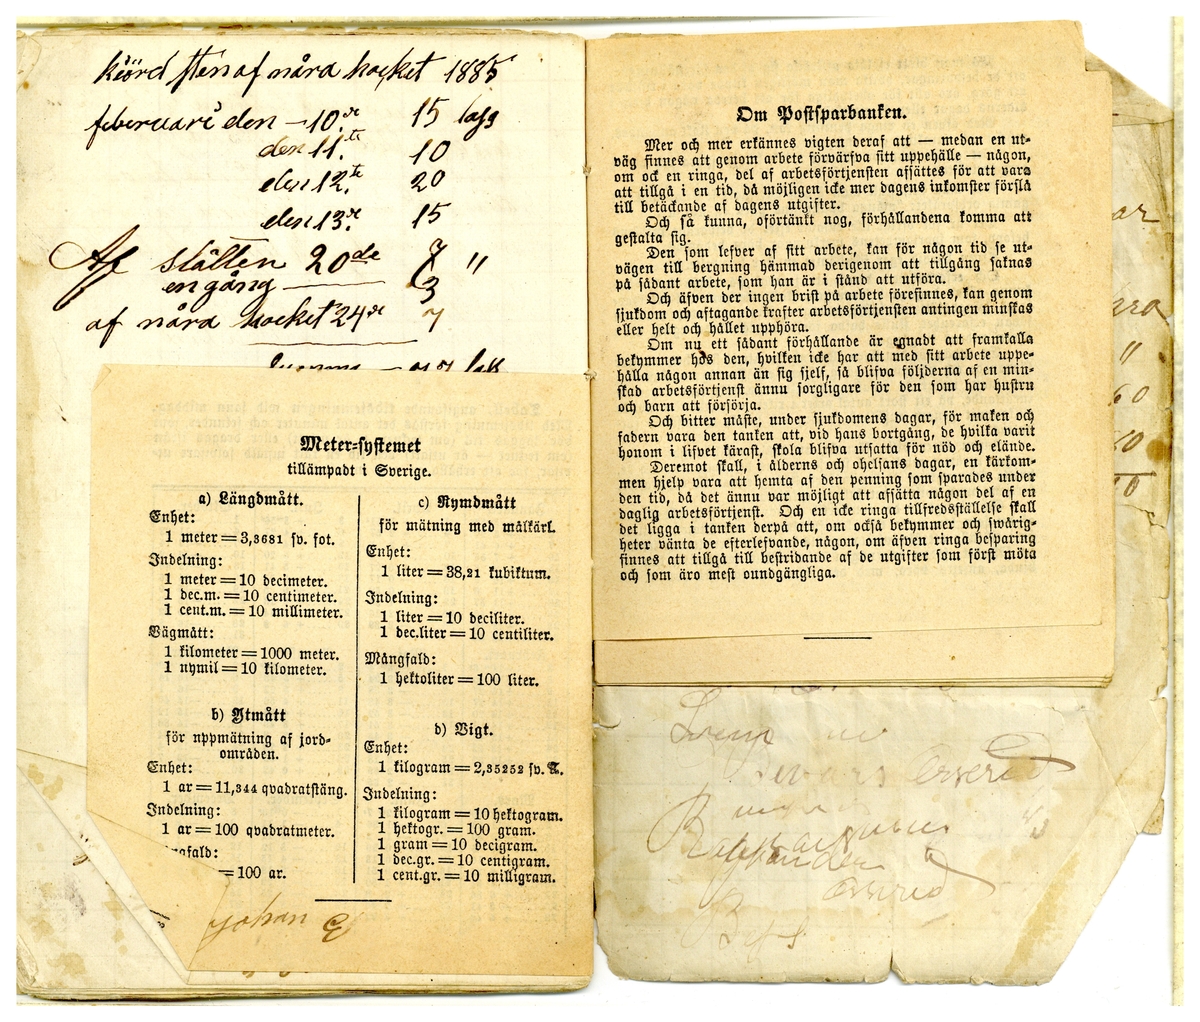 kiörd sten af nåra hocket 1885
februari den 10de 15 lass
den 11.te 10
den 12.te 20
den 13.de 15
Af slåtten 20de 7 "
en gång 3
af nåra hocket 24de 7
Meter-systemet
tillämpadt i Sverige.
a) Längdmått.
Enhet:
1 meter = 3,3681 sv. fot.
Indelning:
1 meter = 10 decimeter.
1 dec.m. = 10 centimeter.
1 cent.m. = 10 millimeter.
Vägmått:
1 kilometer = 1000 meter.
1 nymil = 10 kilometer.
b) Ytmått
för uppmätning af jord-
områden.
Enhet:
1 ar = 11,344 qvadratstäng.
Indelning:
1 ar = 100 qvadratmeter.
ngfald:
= 100 ar.
c) Rymdmått
för mätning med målkärl.
Enhet:
1 liter = 38,21 kubiktum.
Indelning:
1 liter = 10 deciliter.
1 dec.liter = 10 centiliter.
Mångfald:
1 hektoliter = 100 liter.
d) Vigt.
Enhet:
1 kilogram = 2,35252 sv. ℔.
Indelning:
1 kilogram = 10 hektogram.
1 hektogr. = 100 gram.
1 gram = 10 decigram.
1 dec.gr. = 10 centigram.
1 cent.gr. = 10 milligram.
Johan E
Om Postsparbanken.
Mer och mer erkännes vigten deraf att — medan en ut-
väg finnes att genom arbete förvärfva sitt uppehälle — någon,
om ock en ringa, del af arbetsförtjensten afsättes för att vara
att tillgå i en tid, då möjligen icke mer dagens inkomster förslå
till betäckande af dagens utgifter.
Och så kunna, oförtänkt nog, förhållandena komma att
gestalta sig.
Den som lefver af sitt arbete, kan för någon tid se ut-
vägen till bergning hämmad derigenom att tillgång saknas
på sådant arbete, som han är i stånd att utföra.
Och äfven der ingen brist på arbete förefinnes, kan genom
sjukdom och aftagande krafter arbetsförtjensten antingen minskas
eller helt och hållet upphöra.
Om nu ett sådant förhållande är egnadt att framkalla
bekymmer hos den, hvilken icke har att med sitt arbete uppe-
hålla någon annan än sig sjelf, så blifva följderna af en min-
skad arbetsförtjenst ännu sorgligare för den som har hustru
och barn att försörja.
Och bitter måste, under sjukdomens dagar, för maken och
fadern vara den tanken att, vid hans bortgång, de hvilka varit
honom i lifvet kärast, skola blifva utsatta för nöd och elände.
Deremot skall, i ålderns och ohelsans dagar, en kärkom-
men hjelp vara att hemta af den penning som sparades under
den tid, då det ännu var möjligt att afsätta någon del af en
daglig arbetsförtjenst. Och en icke ringa tillfredsställelse skall
det ligga i tanken derpå att, om också bekymmer och svårig-
heter vänta de efterlefvande, någon, om äfven ringa besparing
finnes att tillgå till bestridande af de utgifter som först möta
och som äro mest oundgängliga.